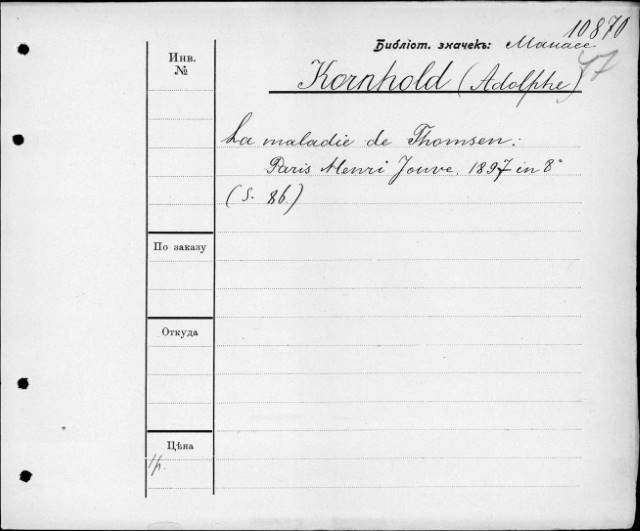 10870
Библіот. значекъ: Манасс
77
Инв.
№
Kornhold (Adolphe)
La maladie de Thomsen.
Paris Henri Jouve. 1897 in 8°
(S. 86.)
По заказу
Откуда
Цѣна
1р.